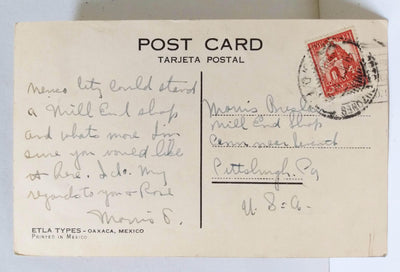 POST CARD
TARJETA POSTAL
Mexico City could stand
a Mill End shop
and whats more I'm
sure you would like
it here. I do. My
regards to you & Rose
Morris S.
ETLA TYPES - OAXACA, MEXICO
PRINTED IN MEXICO
Morris
Mill End Shop
Penn near
Pittsburgh. Pa
U.S.A.